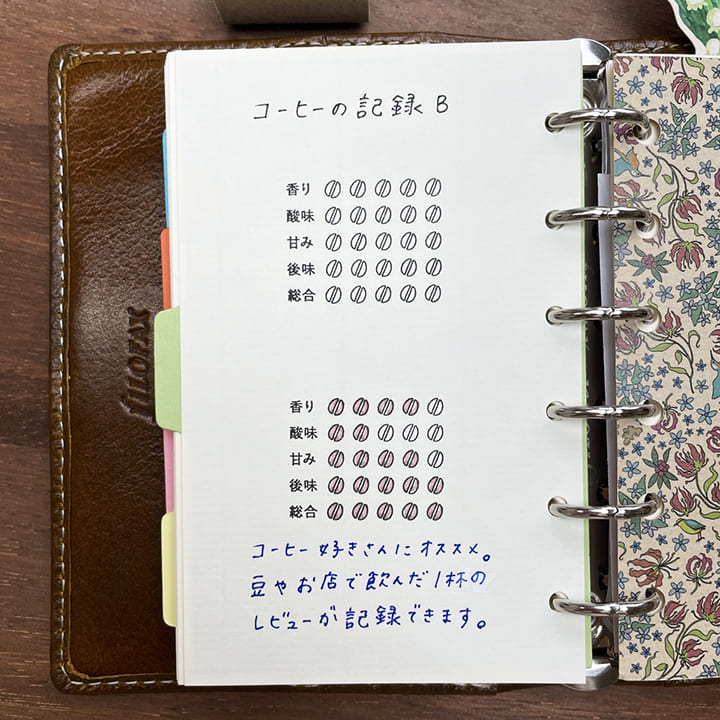 コーヒーの記録 B
香り
酸味
甘み
後味
総合
香り
酸味
甘み
後味
総合
コーヒー好きさんにオススメ。
豆やお店で飲んだ1杯の
レビューが記録できます。
filofax